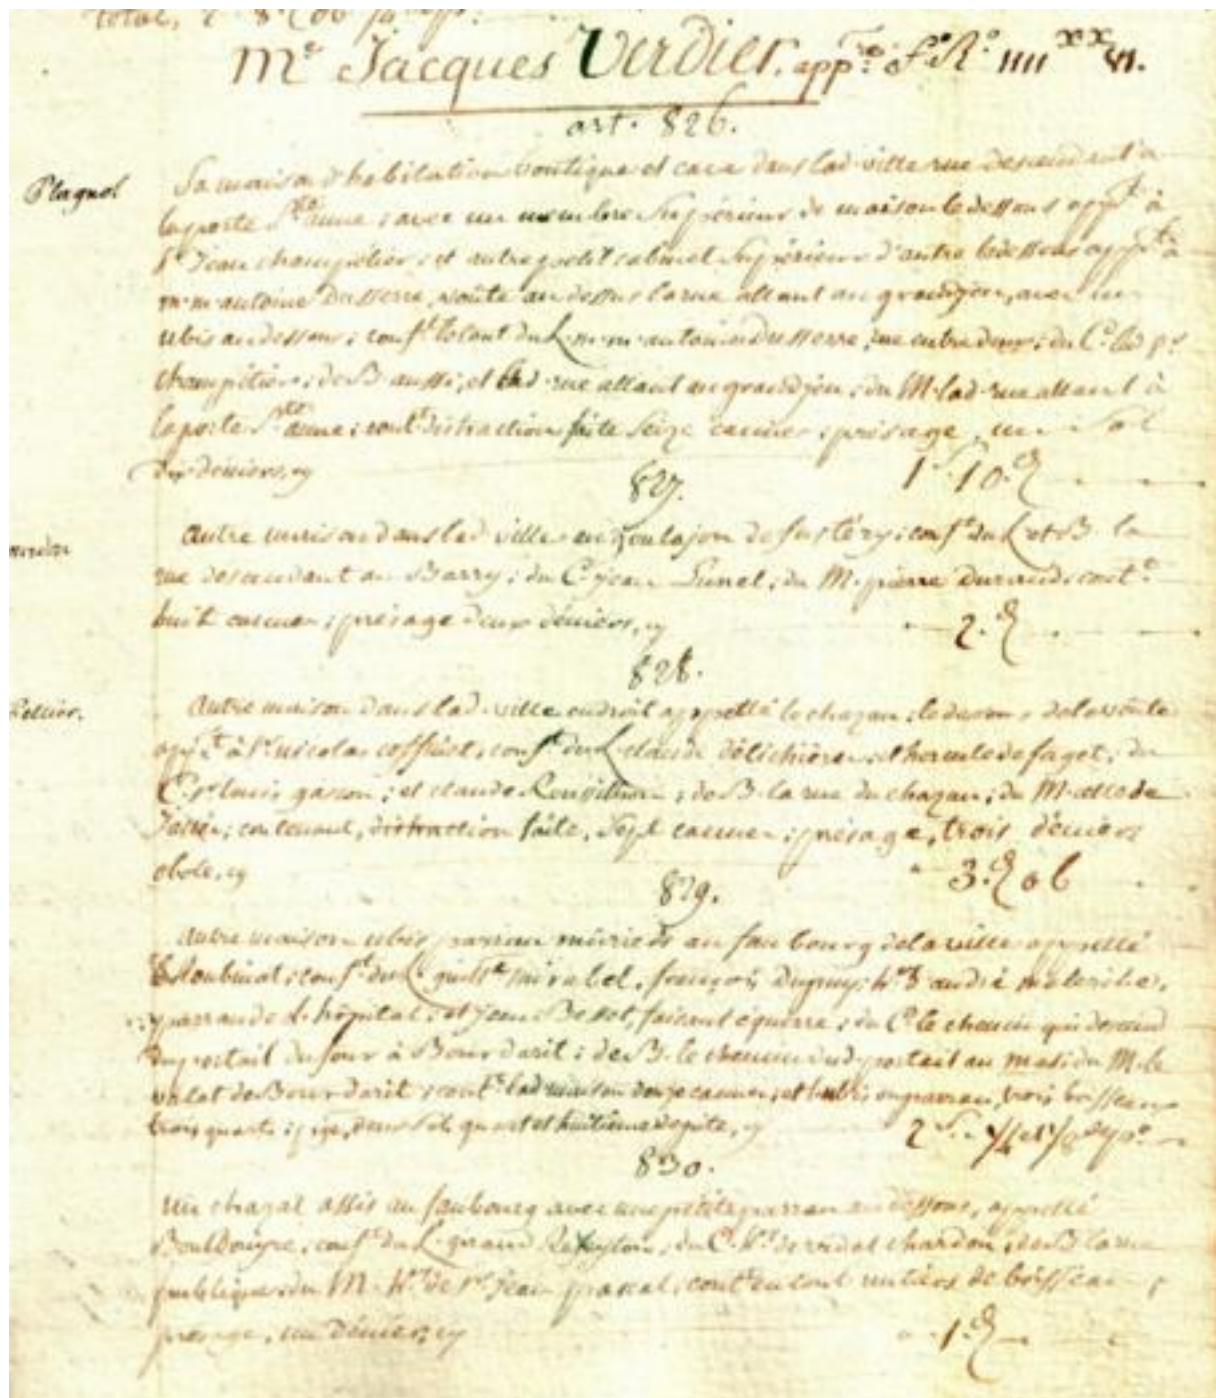 total, 2
Me Jacques Verdier. appre. fo. Ro. IIIIxx VI.
art. 826.
Plagnol
Sa maison d'habilation boutique et cave dans lad. ville rue descendant a
la porte Ste anne; avec un membre Supérieur de maison le dessous appt. à
Sr. Jean champétier; et autre petit cabinet Supérieur d'autre le dessous appt. à
m.m. antoine Dusserre, voûte au dessus la rue allant au grand jeu, avec un
ubis au dessous; conft. levant du L. m.m. antoine dusserre, rue entre deux; du C. led. sr.
champétier; de B. aussi, et lad. rue allant au grand jeu; du M. lad. rue allant à
la porte Ste. anne; cont. distraction faite Seize cannes; présage, un Sol
Dix déniers, cy 1 s. 10. d
827.
Autre maison dans lad. ville de fustéry; conft. du L. et B. la
rue descendant au Barry; du C. jean Lunel; du M. pierre Durand; conte.
huit cannes; présage Deux déniers, cy 2. d
828.
Pellier.
Autre maison dans lad. ville endroit appellé le chazan; le dessous de la voûte
appt. à Sr. nicolas coffinet; conft. du L. claude délichières, et hercule de faget; du
C. sr. louis gascon; et claude Roussillon; de B. la rue du chazan; du M. celle de
contenant, distraction faite, Sept cannes; présage, trois déniers
obole, cy 3. d ob
829.
Autre maison ubis parran mûriers au faubourg de la ville appellé
conft. du L. mirabel, françois Dupuy; hrs. andré
parran de L'hôpital, et jean Bessot, faisant équerre; du C. le chemin qui descend
du portail du four à Bourdarit; de B. le chemin dud. portail au mas; du M. le
valat de Bourdarit; cont. lad. maison douze cannes; et ubis ou parran, trois boisseaux
trois quarts; pge. deux Sols quart et huitième de pite, cy 2 s. 1/4 et 1/8 de pe.
830.
Un chazal assis au faubourg avec une petite parran au dessous, appellé
conft. du L. du C. hrs. de vidal chardon; de B. la rue
publique; du M. hrs. de Sr. Jean pascal; conte. en tout un tiers de boisseau
présage, un Dénier, cy 1. d